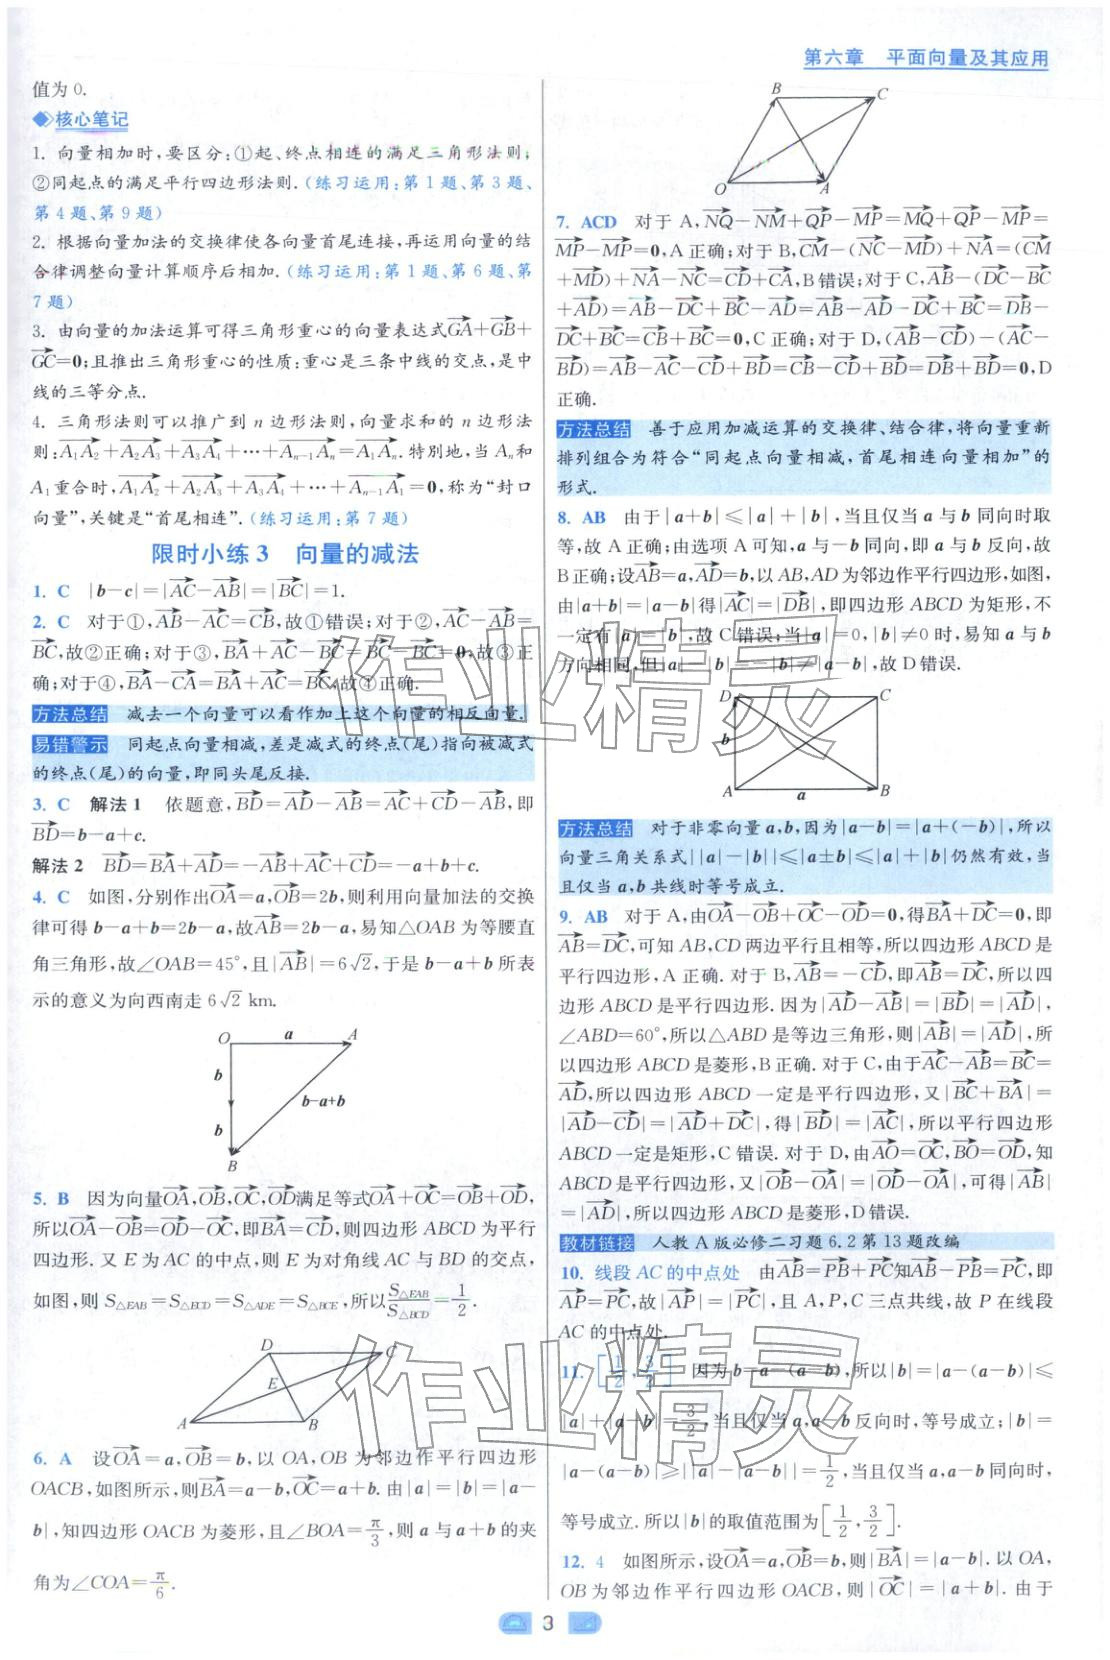 第六章 平面向量及其应用
值为 0.
核心笔记
1. 向量相加时,要区分:①起、终点相连的满足三角形法则;
②同起点的满足平行四边形法则.(练习运用:第 1 题、第 3 题、
第 4 题、第 9 题)
2. 根据向量加法的交换律使各向量首尾连接,再运用向量的结
合律调整向量计算顺序后相加.(练习运用:第 1 题、第 6 题、第
7 题)
3. 由向量的加法运算可得三角形重心的向量表达式GA+GB+
GC=0;且推出三角形重心的性质:重心是三条中线的交点,是中
线的三等分点.
4. 三角形法则可以推广到 n 边形法则,向量求和的 n 边形法
则:A₁A₂+A₂A₃+A₃A₄+…+Aₙ₋₁Aₙ=A₁Aₙ.特别地,当 Aₙ和
A₁重合时,A₁A₂+A₂A₃+A₃A₄+…+Aₙ₋₁A₁=0,称为“封口
向量”,关键是“首尾相连”.(练习运用:第 7 题)
限时小练 3 向量的减法
1. C |b-c|=|AC-AB|=|BC|=1.
2. C 对于①,AB-AC=CB,故①错误;对于②,AC-AB=
BC,故②正确;对于③,AB+BC-AC=BC-BC=0,故③正
确;对于④,BA-CA=BA+AC=BC,故④正确.
方法总结 减去一个向量可以看作加上这个向量的相反向量.
易错警示 同起点向量相减,差是减式的终点(尾)指向被减式
的终点(尾)的向量,即同头尾反接.
3. C 解法 1 依题意,BD=AD-AB=AC+CD-AB,即
BD=b-a+c.
解法 2 BD=BA+AD=-AB+AC+CD=-a+b+c.
4. C 如图,分别作出OA=a,OB=2b,则利用向量加法的交换
律可得 b-a+b=2b-a,故AB=2b-a,易知△OAB 为等腰直
角三角形,故∠OAB=45°,且|AB|=6√2,于是 b-a+b 所表
示的意义为向西南走 6√2 km.
O a A
b
b-a+b
b
B
5. B 因为向量OA,OB,OC,OD满足等式OA+OC=OB+OD,
所以OA-OB=OD-OC,即BA=CD,则四边形 ABCD 为平行
四边形. 又 E 为 AC 的中点,则 E 为对角线 AC 与 BD 的交点,
如图,则 S△EAB=S△ECD=S△ADE=S△BCE,所以S△EAB/S△BCD=1/2.
D C
E
A B
6. A 设OA=a,OB=b,以 OA,OB 为邻边作平行四边形
OACB,如图所示,则BA=a-b,OC=a+b. 由|a|=|b|=|a-
b|,知四边形 OACB 为菱形,且∠BOA=π/3,则 a 与 a+b 的夹
角为∠COA=π/6.
B C
O A
7. ACD 对于 A,NQ-NM+QP-MP=MQ+QP-MP=
MP-MP=0,A 正确;对于 B,CM-(NC-MD)+NA=(CM
+MD)+NA-NC=CD+CA,B 错误;对于 C,AB-(DC-BC
+AD)=AB-DC+BC-AD=AB-AD-DC+BC=DB-
DC+BC=CB+BC=0,C 正确;对于 D,(AB-CD)-(AC-
BD)=AB-AC-CD+BD=CB-CD+BD=DB+BD=0,D
正确.
方法总结 善于应用加减运算的交换律、结合律,将向量重新
排列组合为符合“同起点向量相减,首尾相连向量相加”的
形式.
8. AB 由于|a+b|≤|a|+|b|,当且仅当 a 与 b 同向时取
等,故 A 正确;由选项 A 可知,a 与-b 同向,即 a 与 b 反向,故
B 正确;设AB=a,AD=b,以 AB,AD 为邻边作平行四边形,如图,
由|a+b|=|a-b|得|AC|=|DB|,即四边形 ABCD 为矩形,不
一定有|a|=|b|,故 C 错误;当|a|=0,|b|≠0时,易知 a 与 b
方向相同,但|a|-|b|=-|b|≠|a-b|,故 D 错误.
D C
b
A a B
方法总结 对于非零向量 a,b,因为|a-b|=|a+(-b)|,所以
向量三角关系式||a|-|b||≤|a±b|≤|a|+|b|仍然有效,当
且仅当 a,b 共线时等号成立.
9. AB 对于 A,由OA-OB+OC-OD=0,得BA+DC=0,即
AB=DC,可知 AB,CD 两边平行且相等,所以四边形 ABCD 是
平行四边形,A 正确. 对于 B,AB=-CD,即AB=DC,所以四
边形 ABCD 是平行四边形. 因为|AD-AB|=|BD|=|AD|,
∠ABD=60°,所以△ABD 是等边三角形,则|AB|=|AD|,所
以四边形 ABCD 是菱形,B 正确. 对于 C,由于AC-AB=BC=
AD,所以四边形 ABCD 一定是平行四边形,又|BC+BA|=
|AD-CD|=|AD+DC|,得|BD|=|AC|,所以平行四边形
ABCD 一定是矩形,C 错误. 对于 D,由AO=OC,BO=OD,知
ABCD 一定是平行四边形,又|OB-OA|=|OD-OA|,可得|AB|
=|AD|,所以四边形 ABCD 是菱形,D 错误.
教材链接 人教 A 版必修二习题 6.2 第 13 题改编
10. 线段 AC 的中点处 由AB=PB+PC知AB-PB=PC,即
AP=PC,故|AP|=|PC|,且 A,P,C 三点共线,故 P 在线段
AC 的中点处.
11. [1/2,3/2] 因为 b=a-(a-b),所以|b|=|a-(a-b)|≤
|a|+|a-b|=3/2,当且仅当 a,a-b 反向时,等号成立;|b|=
|a-(a-b)|≥||a|-|a-b||=1/2,当且仅当 a,a-b 同向时,
等号成立. 所以|b|的取值范围为[1/2,3/2].
12. 4 如图所示,设OA=a,OB=b,则|BA|=|a-b|. 以 OA,
OB 为邻边作平行四边形 OACB,则|OC|=|a+b|. 由于
3
作业精灵
作业精灵